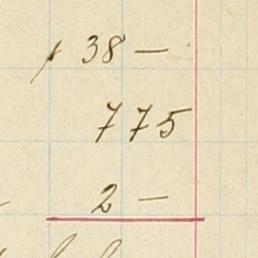 38 —
775
2 —